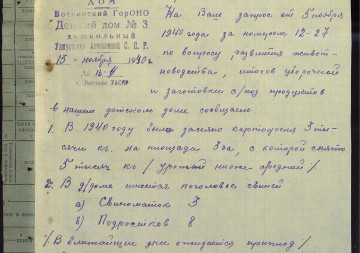 ДОМ
Воткинский ГорОНО
Детский дом № 3
дошкольный
Удмуртская Автономной С. С. Р.
15 - ноября 1940 г.
№ 16-4
г. Воткинск УАССР
На Ваш запрос от 5 ноября
1940 года за номером 12-27
по вопросу развития живот-
новодства, итогов уборочной
и заготовки с/хоз продуктов
в нашем детском доме сообщаем:
1. В 1940 году было засеяно картофелем 3 ты-
сячи кг. на площади 3 га, с которой снято
5 тысяч кг / урожай ниже-средний /
2. В д/доме имеется поголовье свиней
а) Свиноматок 3
б) Подростков 8
/ В ближайшие дни ожидается приплод /